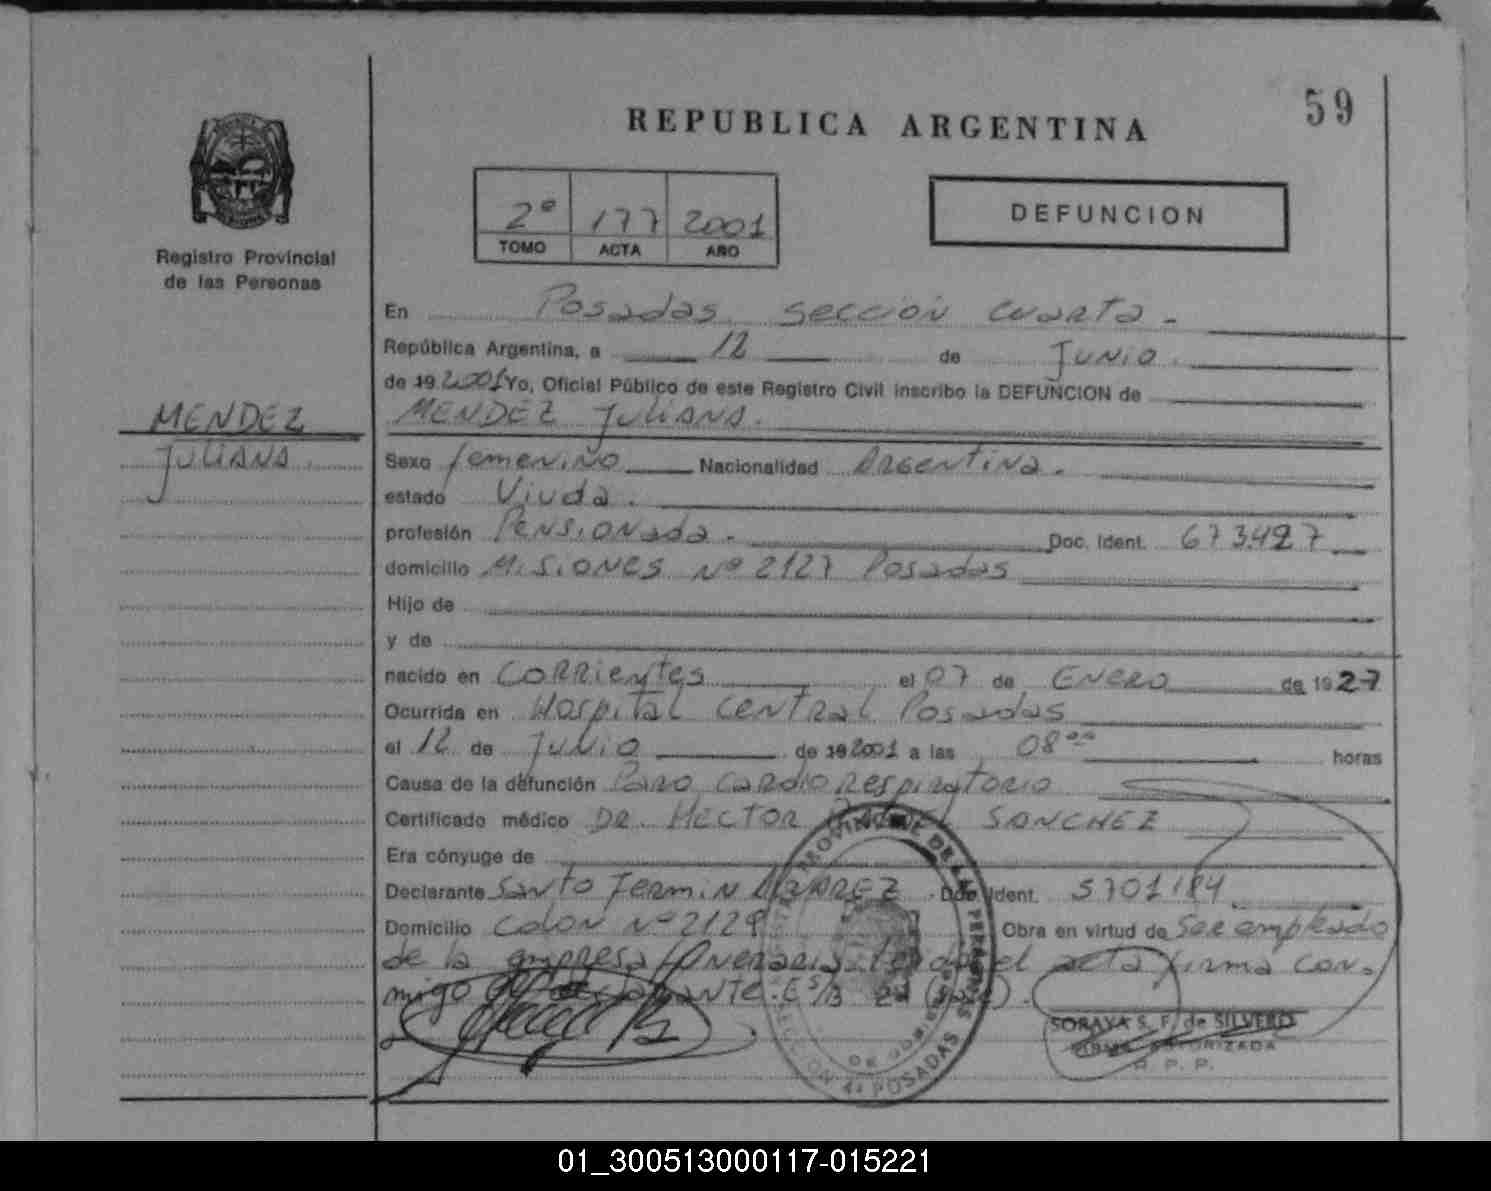 59
REPUBLICA ARGENTINA
2º 177 2001
TOMO ACTA AÑO
DEFUNCION
Registro Provincial
de las Personas
En Posadas sección cuarta.
República Argentina, a 12 de Junio
de 19 2001 Yo, Oficial Público de este Registro Civil inscribo la DEFUNCION de
MENDEZ Juliana.
MENDEZ
Juliana.
Sexo femenino Nacionalidad Argentina.
estado Viuda.
profesión Pensionada. Doc. Ident. 673.427
domicilio Misiones Nº 2127 Posadas
Hijo de
y de
nacido en Corrientes el 07 de Enero de 1927
Ocurrida en Hospital Central Posadas
el 12 de Junio de 19 2001 a las 08 horas
Causa de la defunción Paro Cardiorespiratorio
Certificado médico DR. HECTOR SANCHEZ
Era cónyuge de
Declarante Santo Fermin Doc. Ident. 5701184
Domicilio Colon Nº 2129 Obra en virtud de Ser empleado
de la empresa funeraria. el acta firma con-
migo
SORAYA S. F. de SILVERO
FIRMA AUTORIZADA
R. P. P.
SECCION 4ª POSADAS
01_300513000117-015221